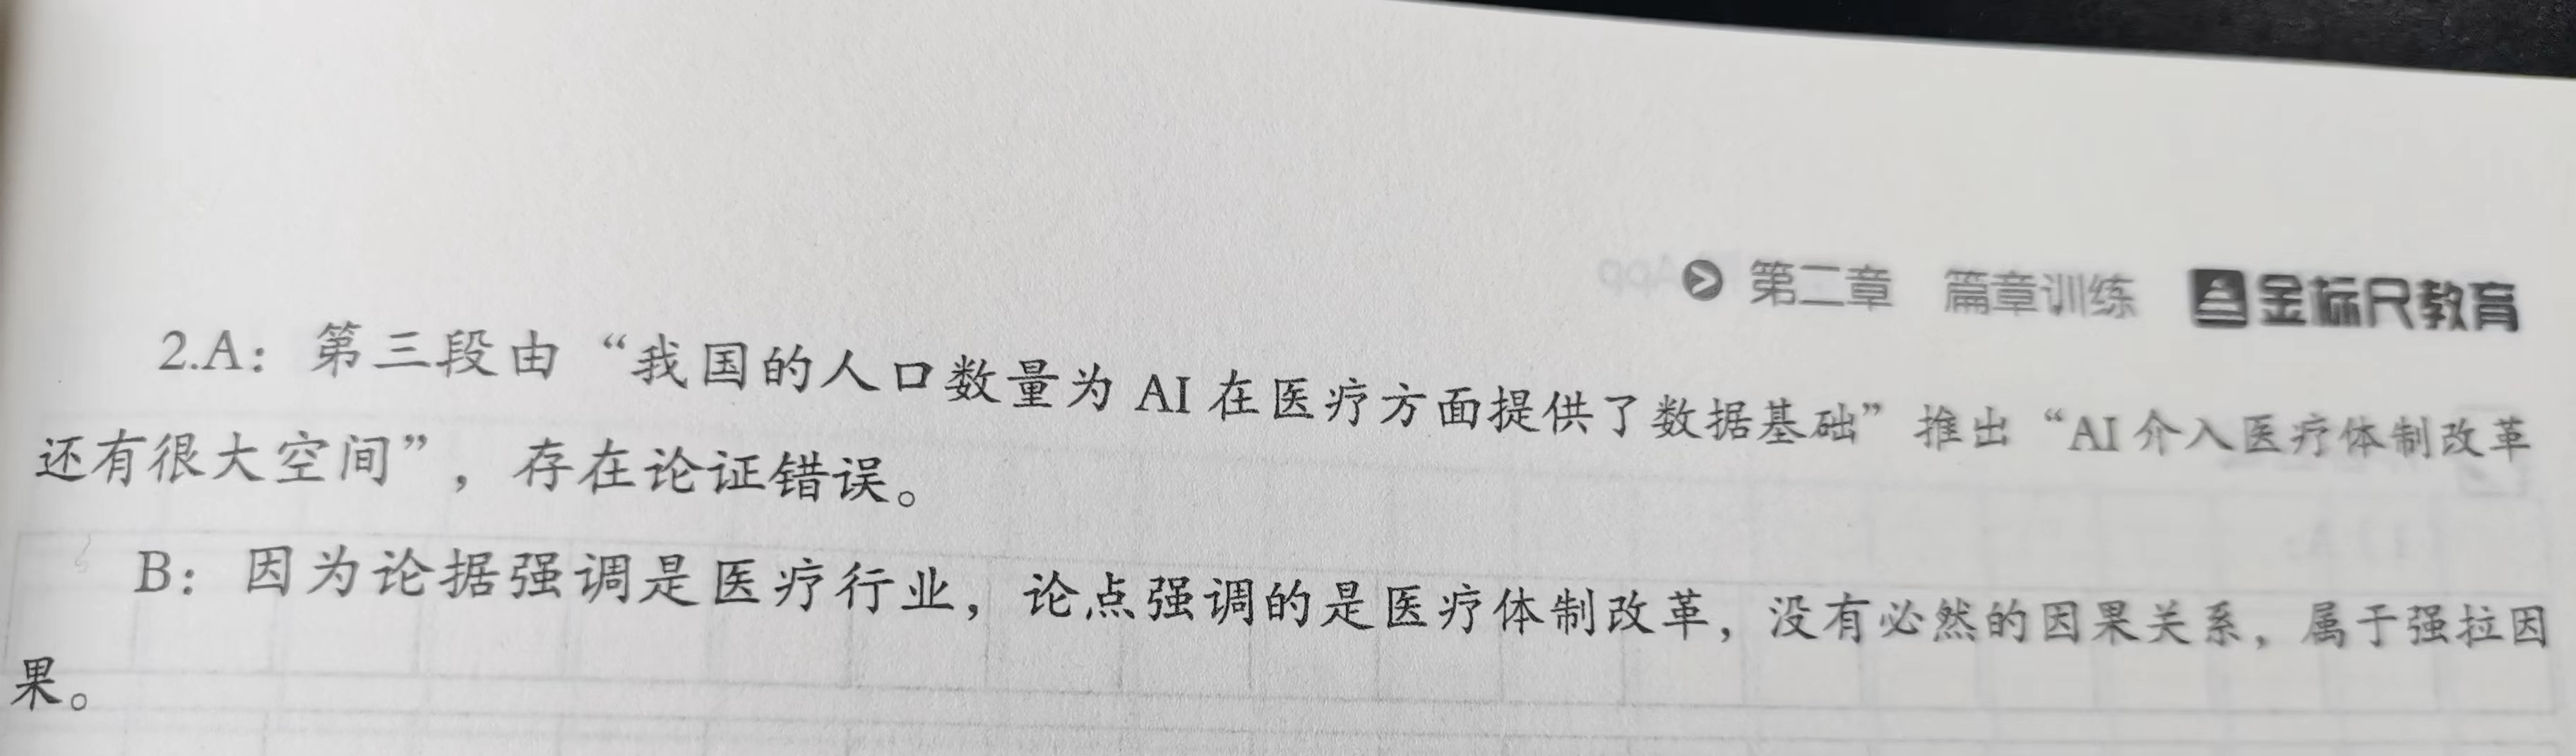 第二章 篇章训练 金标尺教育
2.A：第三段由“我国的人口数量为 AI 在医疗方面提供了数据基础”推出“AI 介入医疗体制改革
还有很大空间”，存在论证错误。
B：因为论据强调是医疗行业，论点强调的是医疗体制改革，没有必然的因果关系，属于强拉因
果。